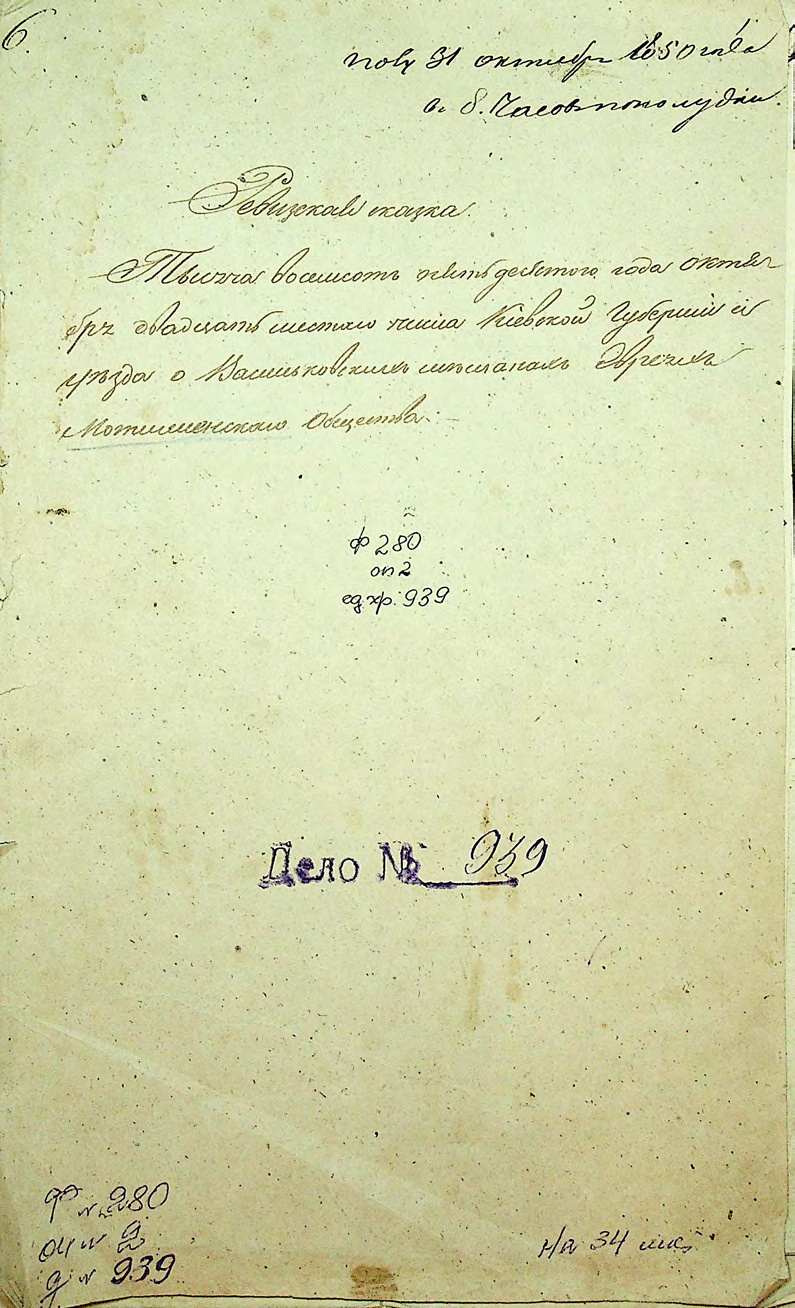 6.
пол 31 октября 1850 года
в 8. Часов пополудни.
Ревизская сказка.
Тысяча восемсотъ пятьдесятого года октя-
бря двадцать шестаго числа Кіевской Губерніи и
уѣзда о Васильковскихъ мѣщанахъ Евреяхъ
Общества. —
ф 280
оп 2
ед. хр. 939
Дело № 939
ф № 280
оп № 2
д № 939
На 34 лис.